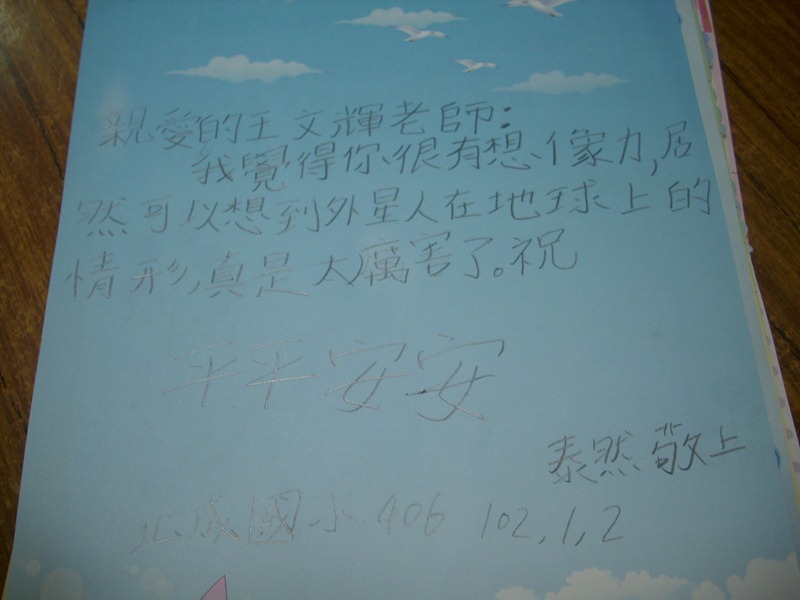 親愛的王文輝老師：
我覺得你很有想像力,居
然可以想到外星人在地球上的
情形,真是太厲害了。祝
平平安安
泰然敬上
北成國小406 102,1,2